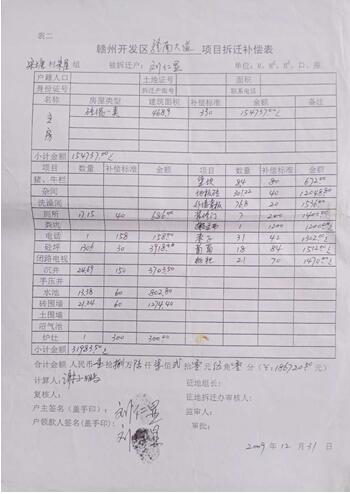 表二
赣州开发区 赣南大道 项目拆迁补偿表
村 组 被拆迁户: 刘仁显 单位:
户籍人口 土地证号 面积
身份证号 拆迁产权号 联系电话
名称 房屋类型 建筑面积 补偿标准 金额 备注
主房 砖混一类 468.9 330 154737.00元
小计金额 154737.00元
项目 数量 补偿标准 金额 项目 数量 补偿标准 金额
猪、牛栏 84 80 6720.00
杂间 301.22 40 12048.80
洗澡间 76.8 20 1536.00
厕所 17.15 40 686.00 7 200 1400.00
粪坑 1 1200 1200.00
电话 1 158 158.00 31 42 1302.00
砼坪 130.6 30 3918.00 18 84 1512.00
闭路电视 21 70 1470.00
沉井 24.69 150 3703.50
手压井
水池 13.38 60 802.80
砖围墙 21.24 60 1274.40
土围墙
沼气池
炉灶 1 300 300.00
小计金额 31983.50元
合计金额 人民币 壹拾捌万陆仟柒佰贰拾零元伍角零分 (¥: 186720.50 元)
计算人: 征地组长:
复核人: 征地拆迁办审核人:
户主签名(盖手印): 刘仁显 监审人:
户领款人签名(盖手印): 刘仁显 审批:
2009 年 12 月 31 日